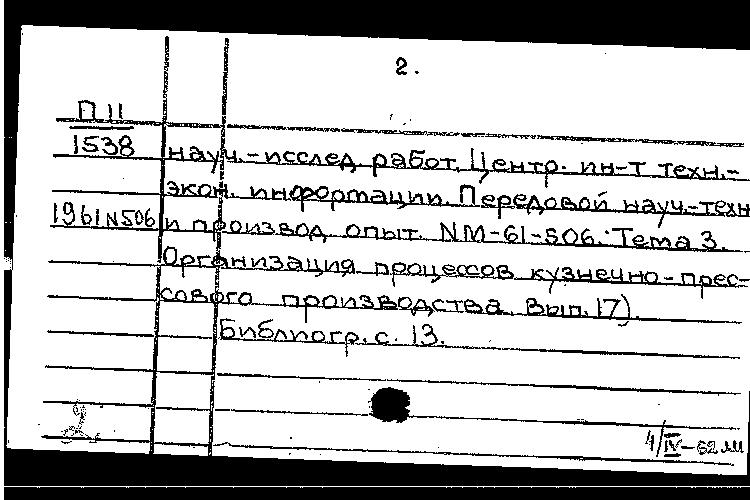 2.
П II
1538
науч.-исслед. работ. Центр. ин-т техн.-
экон. информации. Передовой науч.-техн
1961 N 506 и производ. опыт. NM-61-506. Тема 3.
Организация процессов кузнечно-прес-
сового производства. Вып. 17).
Библиогр. с. 13.
2
4/IV-62